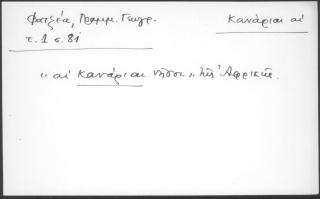 Φατζέα, Γραμμ. Γεωγρ. Κανάριαι αἱ
τ. 1 σ. 81
"αἱ Κανάριαι νῆσοι" τῆς Ἀφρικῆς.